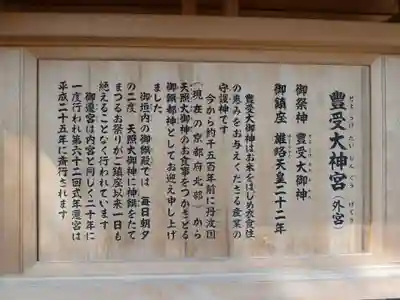 豊受大神宮（外宮）
とようけだいじんぐう　げくう
御祭神　豊受大御神
御鎮座　雄略天皇二十二年
豊受大御神はお米をはじめ衣食住
の恵みをお与えくださる産業の
守護神です
今から約千五百年前に丹波国
（現在の京都府北部）から
天照大御神のお食事をつかさどる
御饌都神としてお迎え申し上げ
ました
御垣内の御饌殿では　毎日朝夕
の二度　天照大御神に神饌をたて
まつるお祭りがご鎮座以来一日も
絶えることなく行われています
御遷宮は内宮と同じく二十年に
一度行われ第六十二回式年遷宮は
平成二十五年に斎行されます